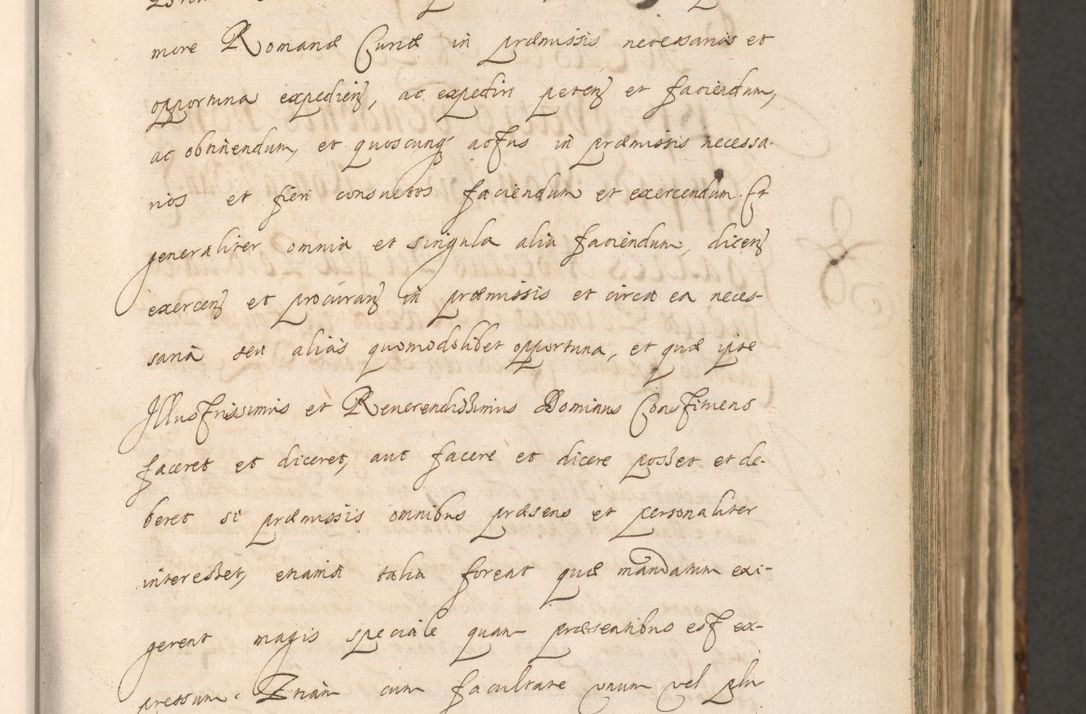 more Romanæ Curiæ in præmissis necessaria et
opportuna expedienꝫ, ac expediri petenꝫ et faciendum,
ac obtinendum, et quoscunqꝫ actus in præmissis necessa-
rios et fieri consuetos faciendum et exercendum. Et
generaliter omnia et singula alia faciendum, dicenꝫ
exercenꝫ et procuranꝫ in præmissis et circa ea neces-
saria seu alias quomodolibet opportuna, et quæ ipse
Illustrissimus et Reverendissimus Dominus Constituens
faceret et diceret, aut facere et dicere posset et de-
beret si præmissis omnibus præsens et personaliter
interesset, etiamsi talia forent quæ mandatum exi-
gerent magis speciale quam præsentibus est ex-
pressum. Etiam cum facultate unum vel plu